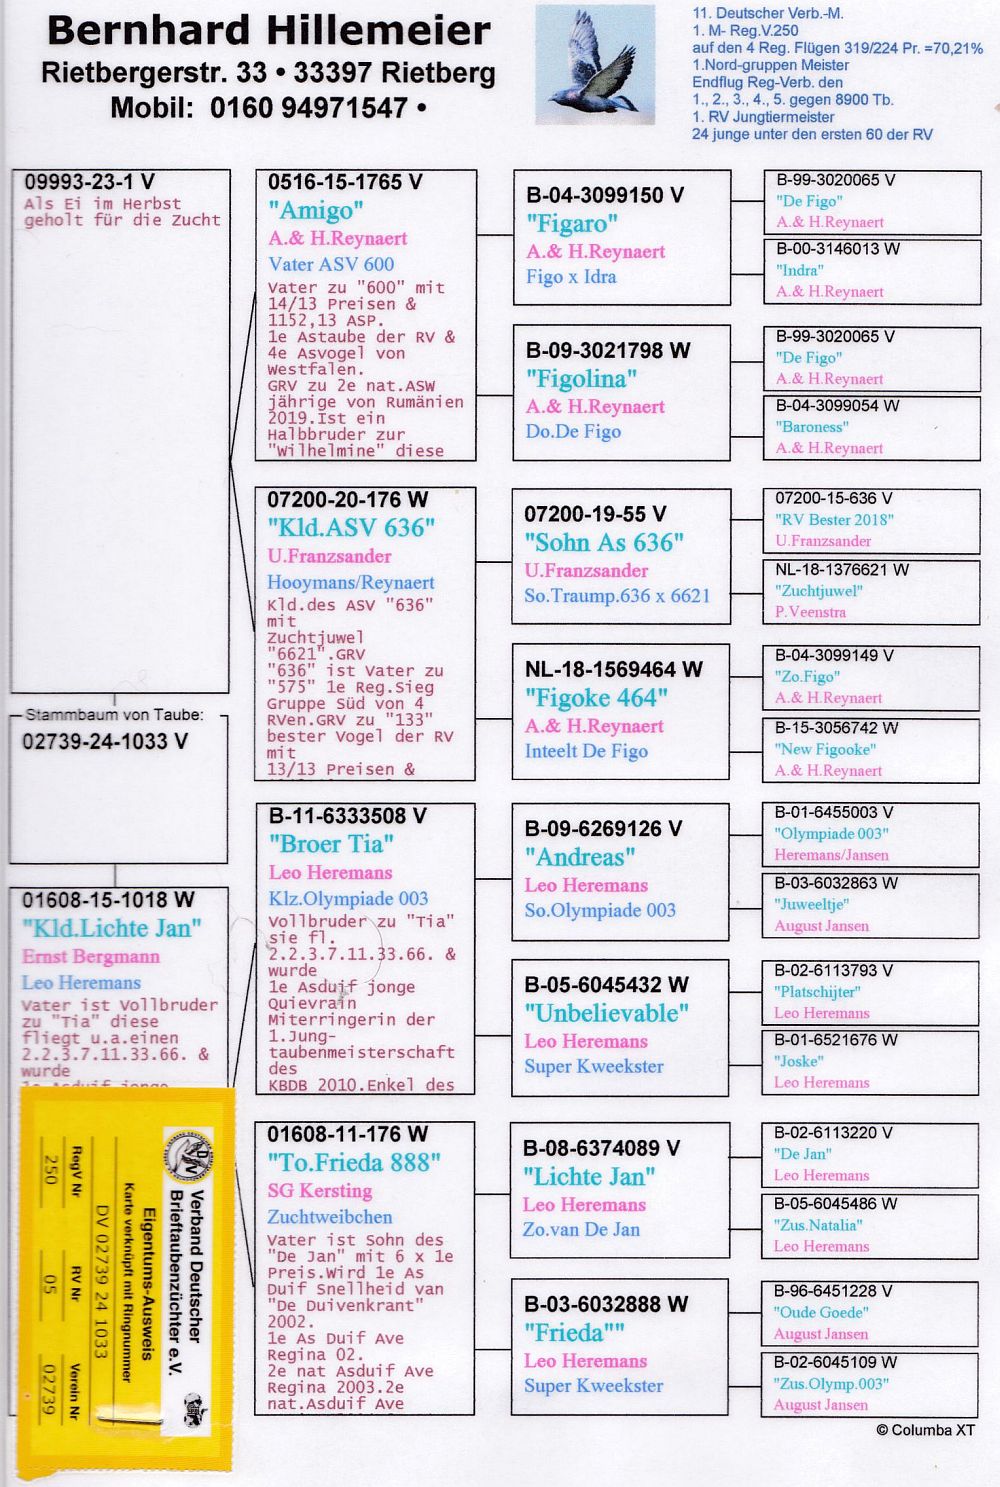 Bernhard Hillemeier
Rietbergerstr. 33 • 33397 Rietberg
Mobil: 0160 94971547 •
11. Deutscher Verb.-M.
1. M- Reg.V.250
auf den 4 Reg. Flügen 319/224 Pr. =70,21%
1.Nord-gruppen Meister
Endflug Reg-Verb. den
1., 2., 3., 4., 5. gegen 8900 Tb.
1. RV Jungtiermeister
24 junge unter den ersten 60 der RV
09993-23-1 V
Als Ei im Herbst
geholt für die Zucht
Stammbaum von Taube:
02739-24-1033 V
01608-15-1018 W
"Kld.Lichte Jan"
Ernst Bergmann
Leo Heremans
Vater ist Vollbruder
zu "Tia" diese
fliegt u.a.einen
2.2.3.7.11.33.66. &
wurde
1e Asduif jonge
0516-15-1765 V
"Amigo"
A.& H.Reynaert
Vater ASV 600
Vater zu "600" mit
14/13 Preisen &
1152,13 ASP.
1e Astaube der RV &
4e Asvogel von
Westfalen.
GRV zu 2e nat.ASW
jährige von Rumänien
2019.Ist ein
Halbbruder zur
"Wilhelmine" diese
07200-20-176 W
"Kld.ASV 636"
U.Franzsander
Hooymans/Reynaert
Kld.des ASV "636"
mit
Zuchtjuwel
"6621".GRV
"636" ist Vater zu
"575" 1e Reg.Sieg
Gruppe Süd von 4
RVen.GRV zu "133"
bester Vogel der RV
mit
13/13 Preisen &
B-11-6333508 V
"Broer Tia"
Leo Heremans
Klz.Olympiade 003
Vollbruder zu "Tia"
sie fl.
2.2.3.7.11.33.66. &
wurde
1e Asduif jonge
Quievrain
Miterringerin der
1.Jung-
taubenmeisterschaft
des
KBDB 2010.Enkel des
01608-11-176 W
"To.Frieda 888"
SG Kersting
Zuchtweibchen
Vater ist Sohn des
"De Jan" mit 6 x 1e
Preis.Wird 1e As
Duif Snellheid van
"De Duivenkrant"
2002.
1e As Duif Ave
Regina 02.
2e nat Asduif Ave
Regina 2003.2e
nat.Asduif Ave
B-04-3099150 V
"Figaro"
A.& H.Reynaert
Figo x Idra
B-09-3021798 W
"Figolina"
A.& H.Reynaert
Do.De Figo
07200-19-55 V
"Sohn As 636"
U.Franzsander
So.Traump.636 x 6621
NL-18-1569464 W
"Figoke 464"
A.& H.Reynaert
Inteelt De Figo
B-09-6269126 V
"Andreas"
Leo Heremans
So.Olympiade 003
B-05-6045432 W
"Unbelievable"
Leo Heremans
Super Kweekster
B-08-6374089 V
"Lichte Jan"
Leo Heremans
Zo.van De Jan
B-03-6032888 W
"Frieda""
Leo Heremans
Super Kweekster
B-99-3020065 V
"De Figo"
A.& H.Reynaert
B-00-3146013 W
"Indra"
A.& H.Reynaert
B-99-3020065 V
"De Figo"
A.& H.Reynaert
B-04-3099054 W
"Baroness"
A.& H.Reynaert
07200-15-636 V
"RV Bester 2018"
U.Franzsander
NL-18-1376621 W
"Zuchtjuwel"
P.Veenstra
B-04-3099149 V
"Zo.Figo"
A.& H.Reynaert
B-15-3056742 W
"New Figooke"
A.& H.Reynaert
B-01-6455003 V
"Olympiade 003"
Heremans/Jansen
B-03-6032863 W
"Juweeltje"
August Jansen
B-02-6113793 V
"Platschijter"
Leo Heremans
B-01-6521676 W
"Joske"
Leo Heremans
B-02-6113220 V
"De Jan"
Leo Heremans
B-05-6045486 W
"Zus.Natalia"
Leo Heremans
B-96-6451228 V
"Oude Goede"
August Jansen
B-02-6045109 W
"Zus.Olymp.003"
August Jansen
© Columba XT
Verband Deutscher
Brieftaubenzüchter e.V.
Eigentums-Ausweis
Karte verknüpft mit Ringnummer
DV 02739 24 1033
RegV Nr
RV Nr
Verein Nr
250
05
02739